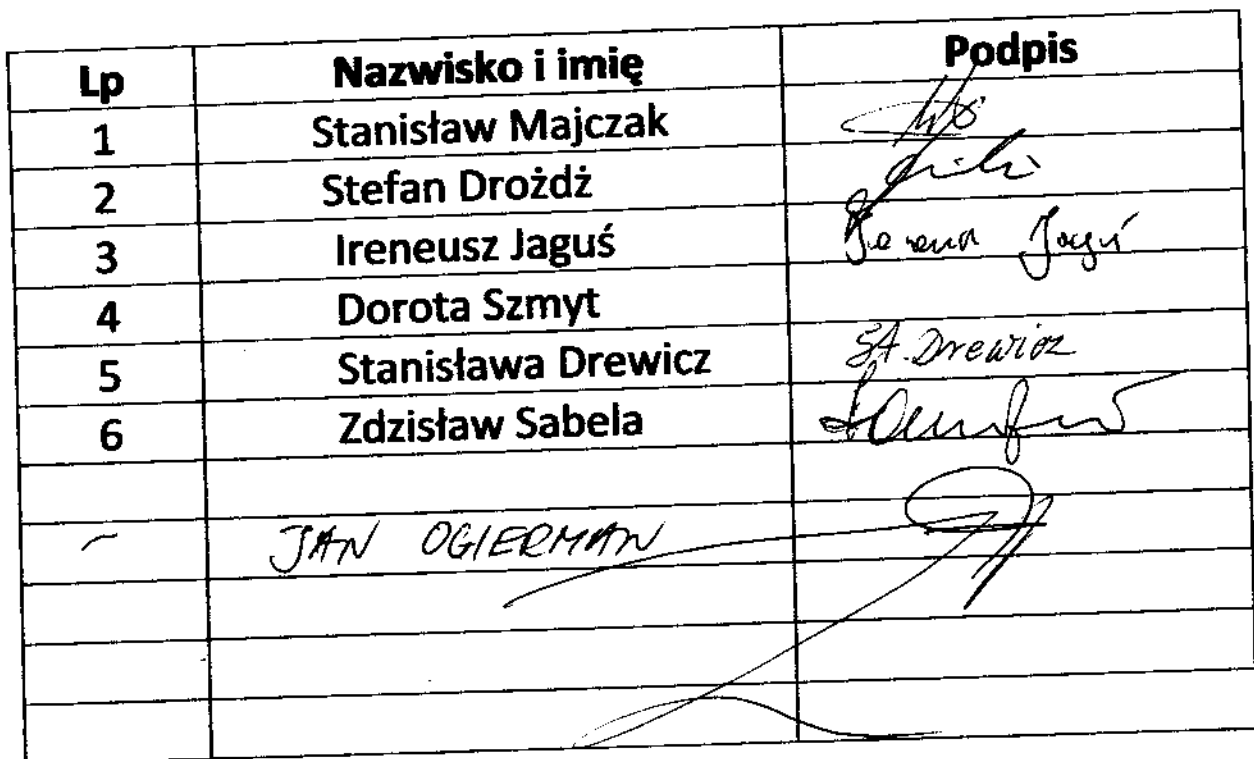 Lp Nazwisko i imię Podpis
1 Stanisław Majczak
2 Stefan Drożdż
3 Ireneusz Jaguś Jaguś
4 Dorota Szmyt
5 Stanisława Drewicz St. Drewicz
6 Zdzisław Sabela
- JAN OGIERMAN